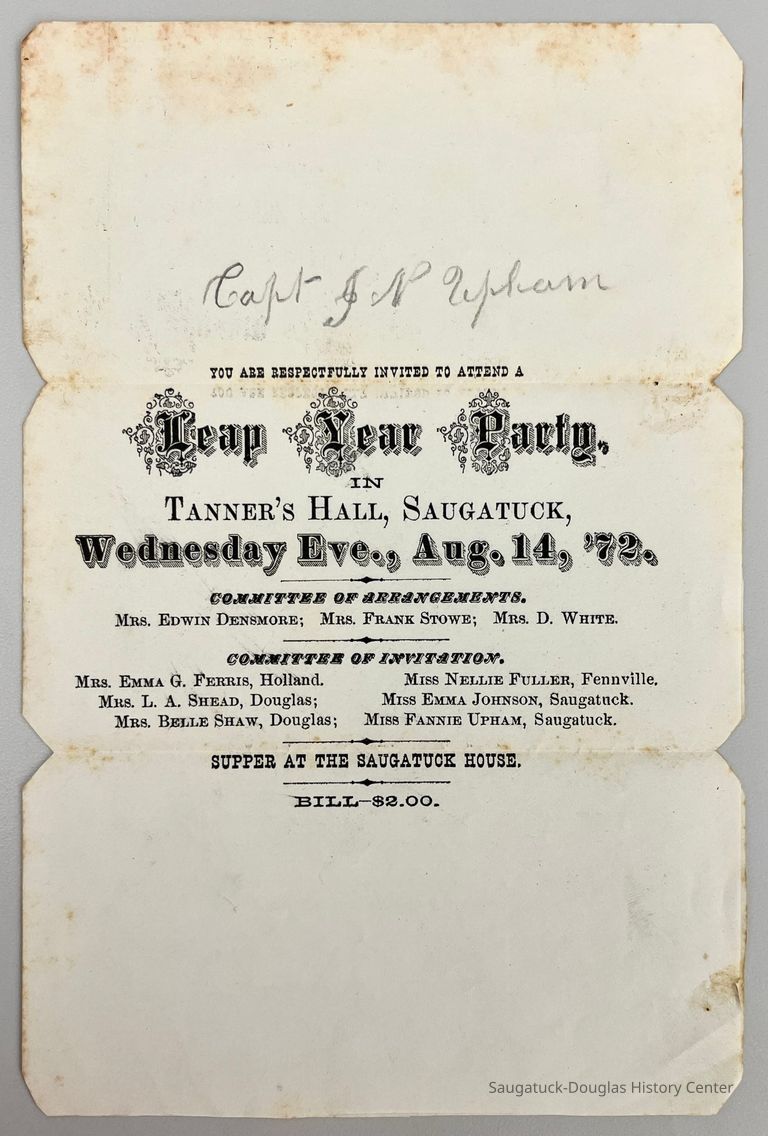 Capt J N Upham
YOU ARE RESPECTFULLY INVITED TO ATTEND A
Leap Year Party,
IN
TANNER'S HALL, SAUGATUCK,
Wednesday Eve., Aug. 14, '72.
COMMITTEE OF ARRANGEMENTS.
MRS. EDWIN DENSMORE; MRS. FRANK STOWE; MRS. D. WHITE.
COMMITTEE OF INVITATION.
MRS. EMMA G. FERRIS, Holland. MISS NELLIE FULLER, Fennville.
MRS. L. A. SHEAD, Douglas; MISS EMMA JOHNSON, Saugatuck.
MRS. BELLE SHAW, Douglas; MISS FANNIE UPHAM, Saugatuck.
SUPPER AT THE SAUGATUCK HOUSE.
BILL—$2.00.
Saugatuck-Douglas History Center